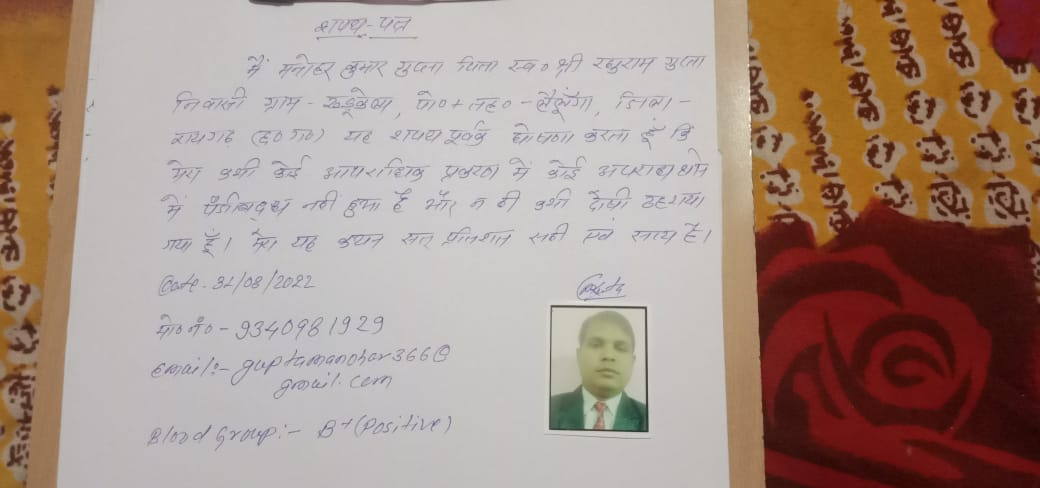 शपथ-पत्र
मैं मनोहर कुमार गुप्ता पिता स्व० श्री रघुराम गुप्ता
निवासी ग्राम - पो० + तह० - लैलूंगा, जिला -
रायगढ़ (छ०ग०) यह शपथ पूर्वक घोषणा करता हूँ कि
मेरा कभी कोई आपराधिक प्रकरण में कोई अपराध थाने
में पंजीबद्ध नहीं हुआ है और न ही कभी दोषी ठहराया
गया हूँ। मेरा यह कथन सत् प्रतिशत सही एवं सत्य है।
Date - 31/08/2022
मो० नं० - 9340981929
email:- guptamanohar366@
gmail.com
Blood Group:- B+ (Positive)